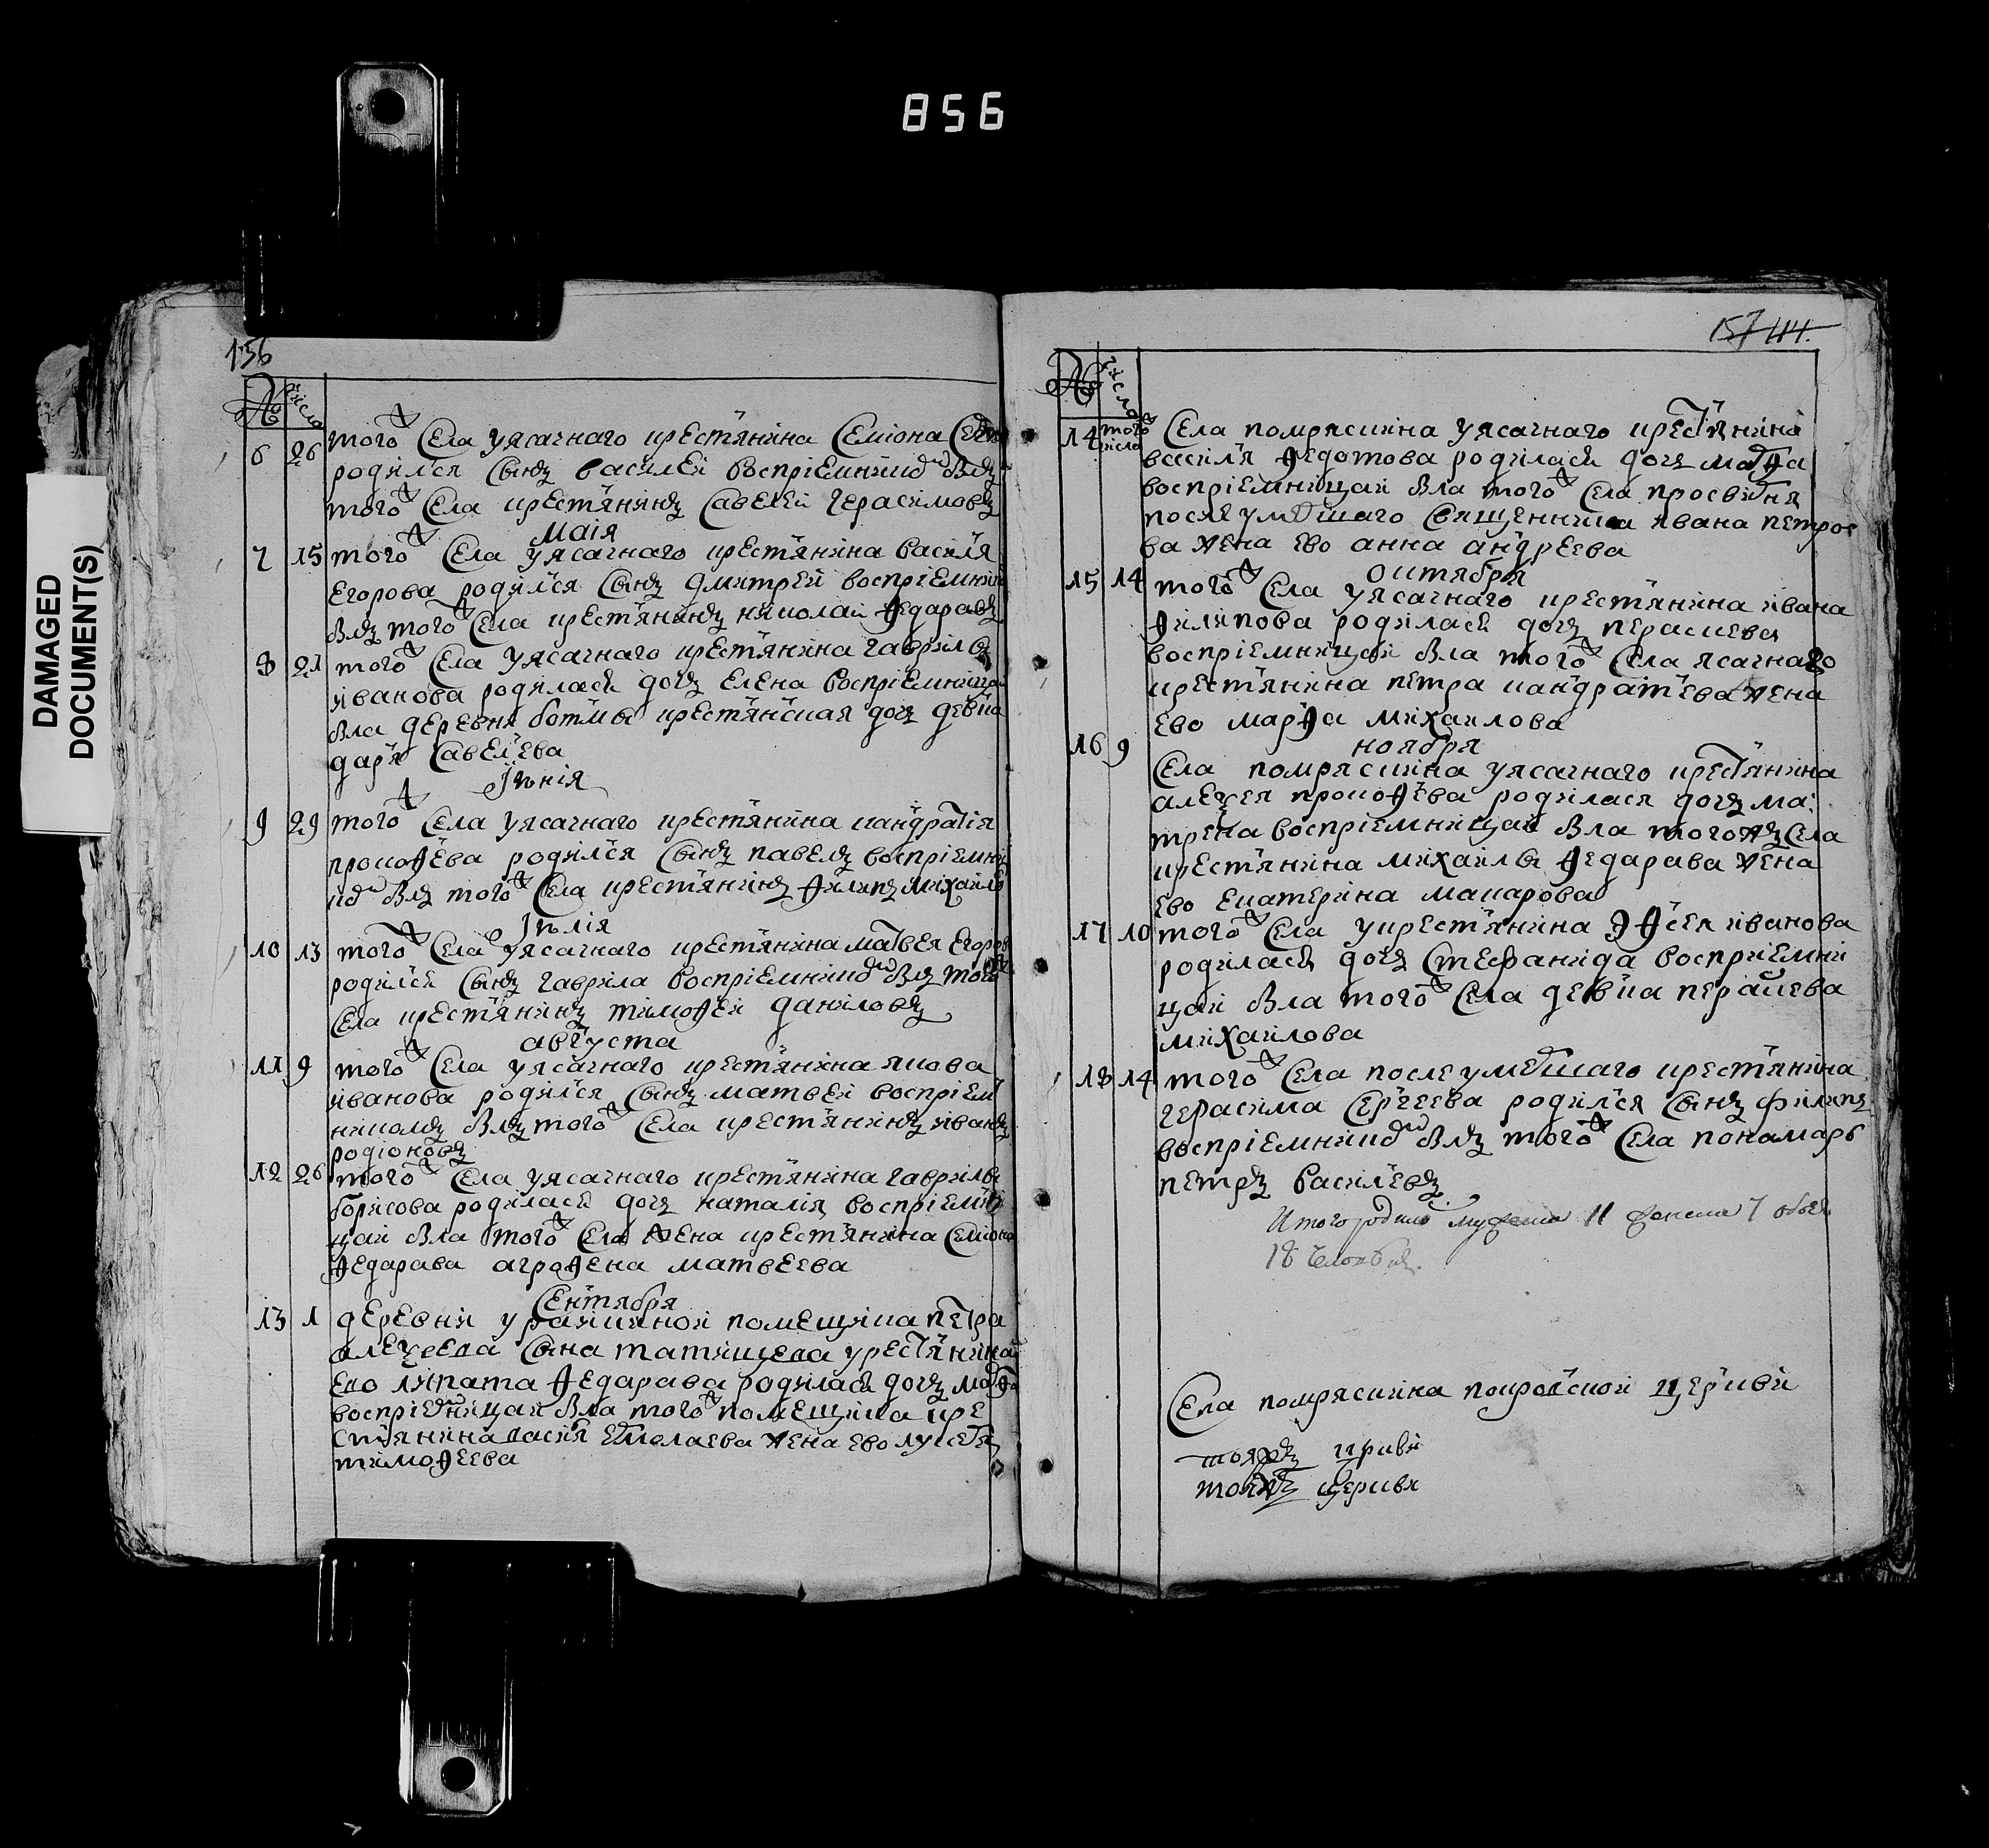 856
DAMAGED
DOCUMENT(S)
156
№ число
6 26 тогож Села уясачнаго крестьянина Семиона
родился Сынъ василеи восприемникомъ былъ
тогож Села крестьянинъ Савелеи герасимовъ
маия
7 15 тогож Села уясачнаго крестьянина василя
Егорова родился Сынъ дмитреи восприемник
былъ тогож Села крестьянинъ николаи Ѳедаравъ
8 21 тогож Села уясачнаго крестьянина гаврилы
иванова родилась дочь Елена восприемницаи
была деревни ботмы крестьянская дочь девка
даря Савельева
Іюнія
9 29 тогож Села уясачнаго крестьянина кандратия
прокоѲева родился Сынъ павелъ восприемни
комъ былъ тогож Села крестьянинъ Ѳилипъ михаило
Іюлія
10 13 тогож Села уясачнаго крестьянина матвея Егоров
родился Сынъ гаврила восприемникомъ былъ тогож
Села крестьянинъ тимоѲеи даниловъ
августа
11 9 тогож Села уясачнаго крестьянина якова
иванова родился Сынъ матвеи восприем
никомъ былъ тогож Села крестьянинъ иванъ
родионовъ
12 26 тогож Села уясачнаго крестьянина гаврилы
борисова родилась дочь наталия восприемни
цаи была тогож Села жена крестьянина Семиона
Ѳедарава аграѲена матвеева
Сентября
13 1 деревни помещика петра
алеѯеева Сына татищева укрестьянина
Ево липата Ѳедарава родилась дочь марѲа
восприемницаи была тогож помещика кре
стьянина васия Ермолаева жена ево
тимоѲеева
157 44.
№ число
14 того числа Села помряскина уясачнаго крестьянина
василя Ѳедотова родилась дочь марѲа
восприемницаи была тогож Села просвирня
после умершаго Священника ивана петро
ва жена ево анна андреева
октября
15 14 тогож Села уясачнаго крестьянина ивана
Ѳилипова родилась дочь пераскева
восприемницеи была тогож Села ясачнаго
крестьянина петра кандратьева жена
ево марѲа михаилова
ноября
16 9
Села помряскина уясачнаго крестьянина
алеѯея прокоѲева родилася дочь ма:
трена восприемницаи была тогожъ Села
крестьянина михаилы Ѳедарава жена
ево Екатерина макарова
17 10 тогож Села укрестьянина иванова
родилась дочь Стефанида восприемни
цаи была тогож Села девка пераскева
михаилова
18 14 тогож Села после умершаго крестьянина
герасима Сергеева родился Сынъ филипъ
восприемникомъ былъ тогож Села понамарь
петръ Василевъ
Итого родило мужеска 11 женска 7 обоего
18 человекъ.
Села помряскина покровской церкви
тояжъ цркви
тояжъ церкви